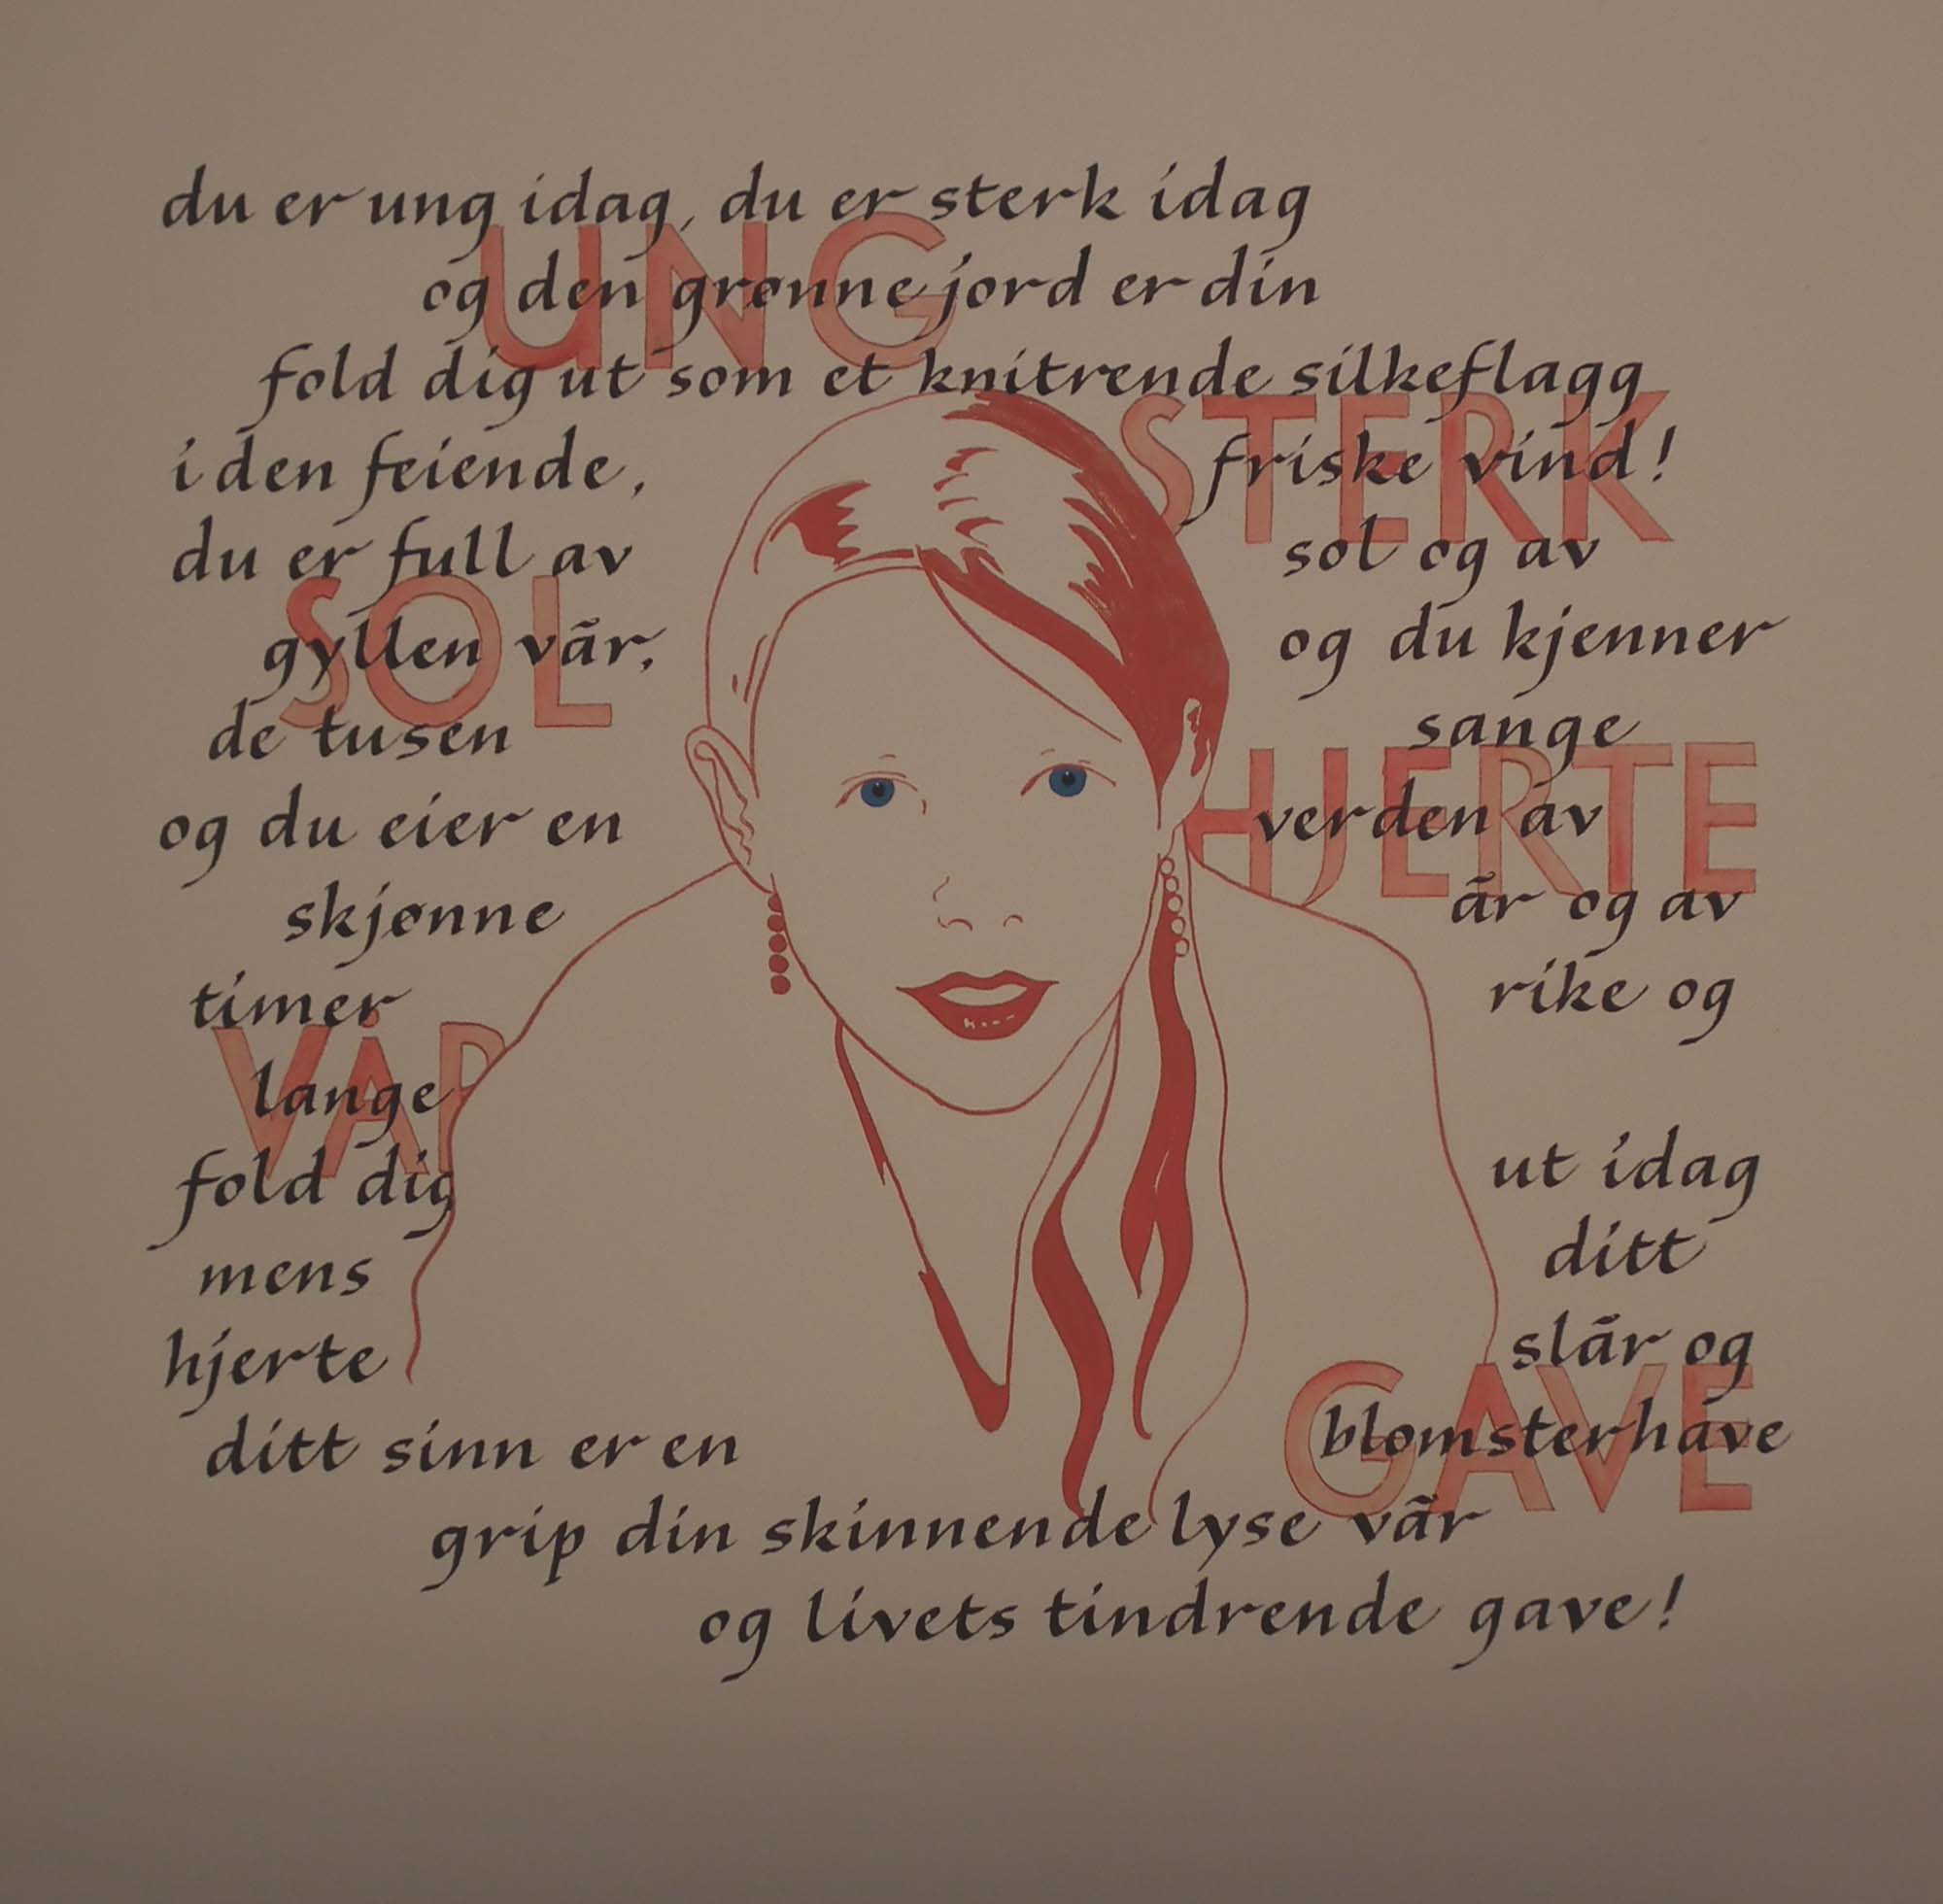 du er ung idag, du er sterk idag
UNG
og den grønne jord er din
fold dig ut som et knitrende silkeflagg
STERK
i den feiende, friske vind!
du er full av sol og av
SOL
gyllen vår, og du kjenner
de tusen sange
HJERTE
og du eier en verden av
skjønne år og av
timer rike og
VÅR
lange
fold dig ut idag
mens ditt
hjerte slår og
GAVE
ditt sinn er en blomsterhave
grip din skinnende lyse vår
og livets tindrende gave!